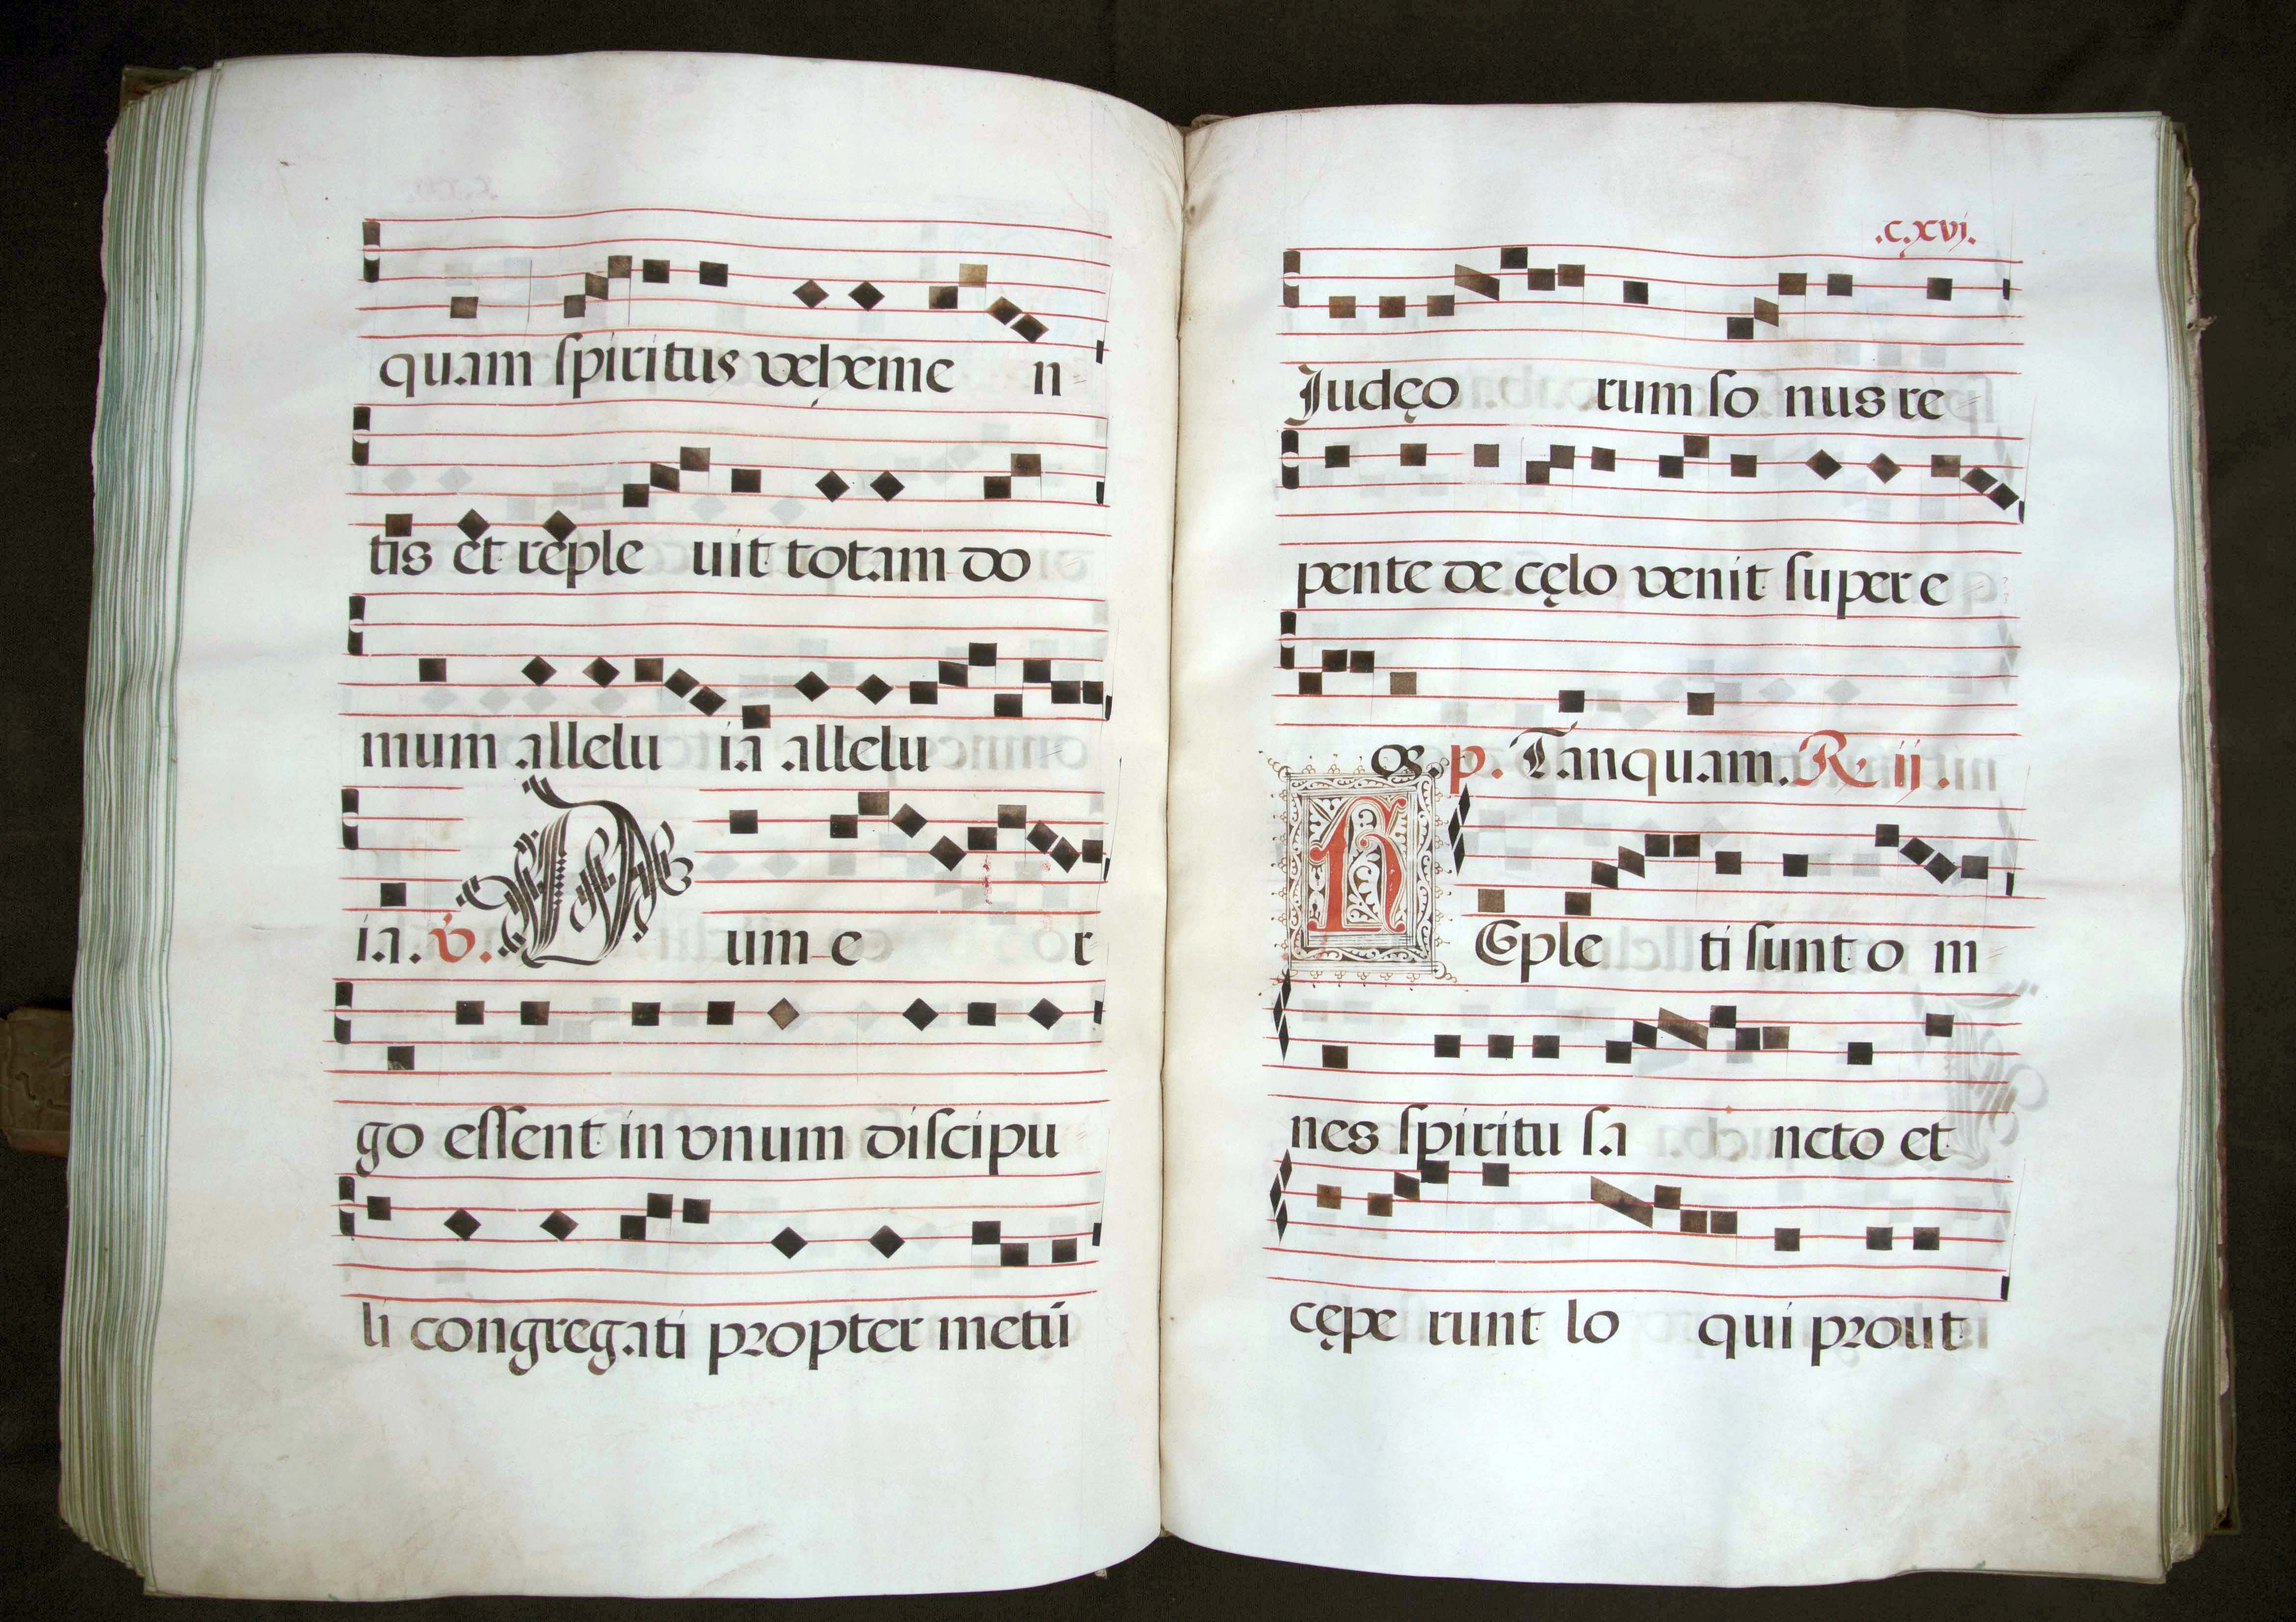 quam spiritus veheme n
tis et reple uit totam do
mum allelu ia allelu
ia. v. Dum e r
go essent in vnum discipu
li congregati propter metū
.c.xvi.
Judęo rum so nus re
pente de cęlo venit super e
os. p. Tanquam. R. ij.
REple ti sunt o m
nes spiritu sa ncto et
cępe runt lo qui prout